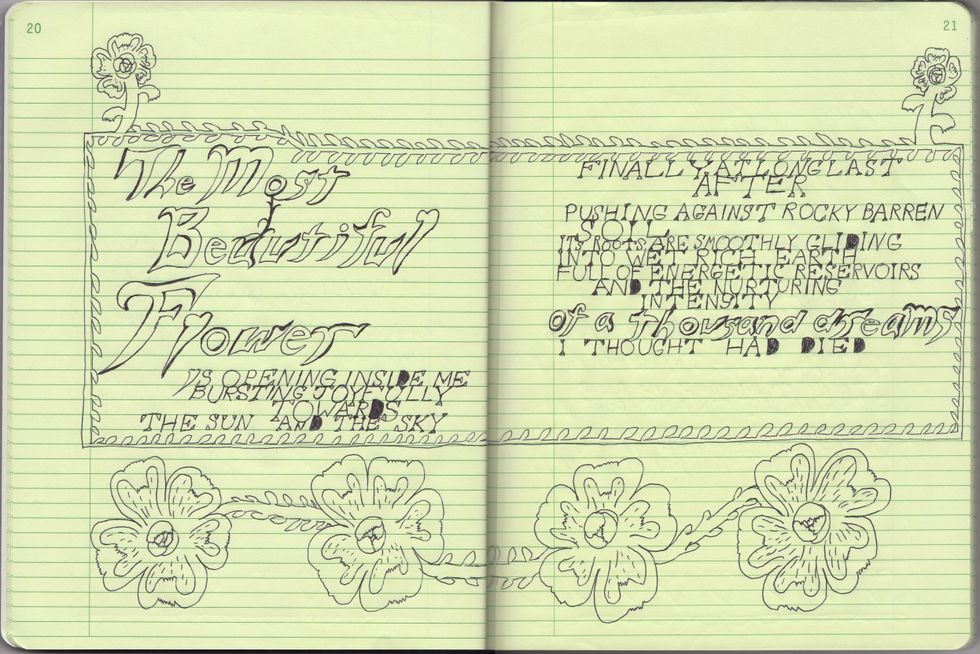 20
The Most
Beautiful
Flower
IS OPENING INSIDE ME
BURSTING JOYFULLY
TOWARDS
THE SUN AND THE SKY
21
FINALLY, AT LONG LAST
AFTER
PUSHING AGAINST ROCKY BARREN
SOIL
ITS ROOTS ARE SMOOTHLY GLIDING
INTO WET RICH EARTH
FULL OF ENERGETIC RESERVOIRS
AND THE NURTURING
INTENSITY
of a thousand dreams
I THOUGHT HAD DIED